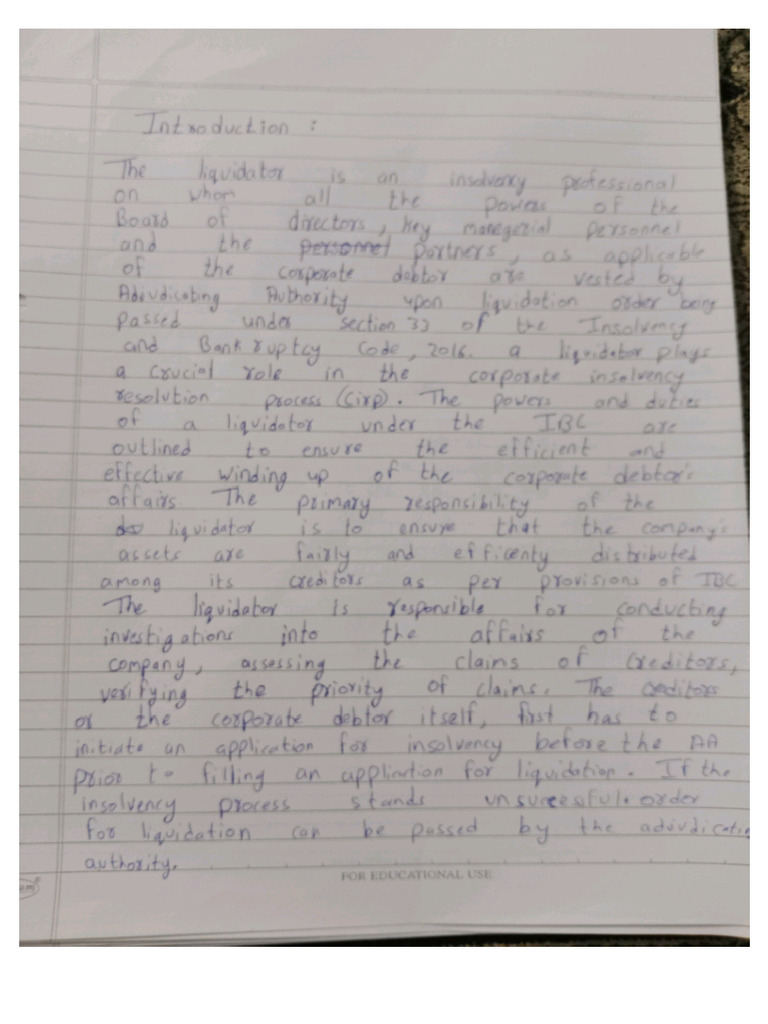 Introduction :
The liquidator is an insolvency professional
on whom all the powers of the
Board of directors, key managerial personnel
and the personnel partners, as applicable
of the corporate debtor are vested by
Adjudicating Authority upon liquidation order being
passed under section 33 of the Insolvency
and Bankruptcy Code, 2016. a liquidator plays
a crucial role in the corporate insolvency
resolution process (Cirp). The powers and duties
of a liquidator under the IBC are
outlined to ensure the efficient and
effective winding up of the corporate debtor's
affairs The primary responsibility of the
liquidator is to ensure that the company's
assets are fairly and efficenty distributed
among its creditors as per provisions of IBC
The liquidator is responsible for conducting
investigations into the affairs of the
company, assessing the claims of creditors,
verifying the priority of claims. The creditors
or the corporate debtor itself, first has to
initiate an application for insolvency before the AA
prior to filling an application for liquidation. If the
insolvency process stands unsuccessful. order
for liquidation can be passed by the
authority.
FOR EDUCATIONAL USE